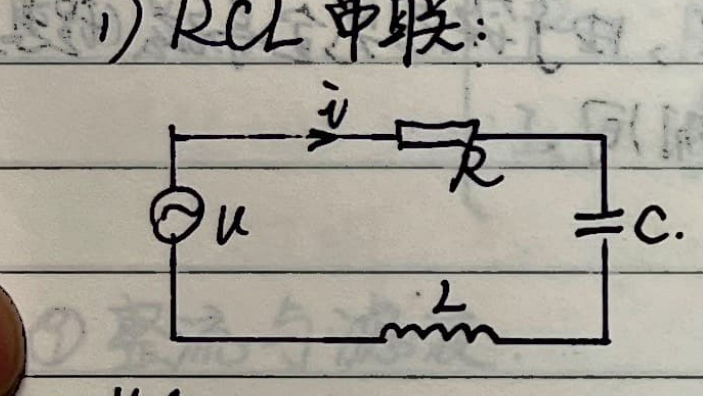 1) RCL串联:
i
R
u
C.
L